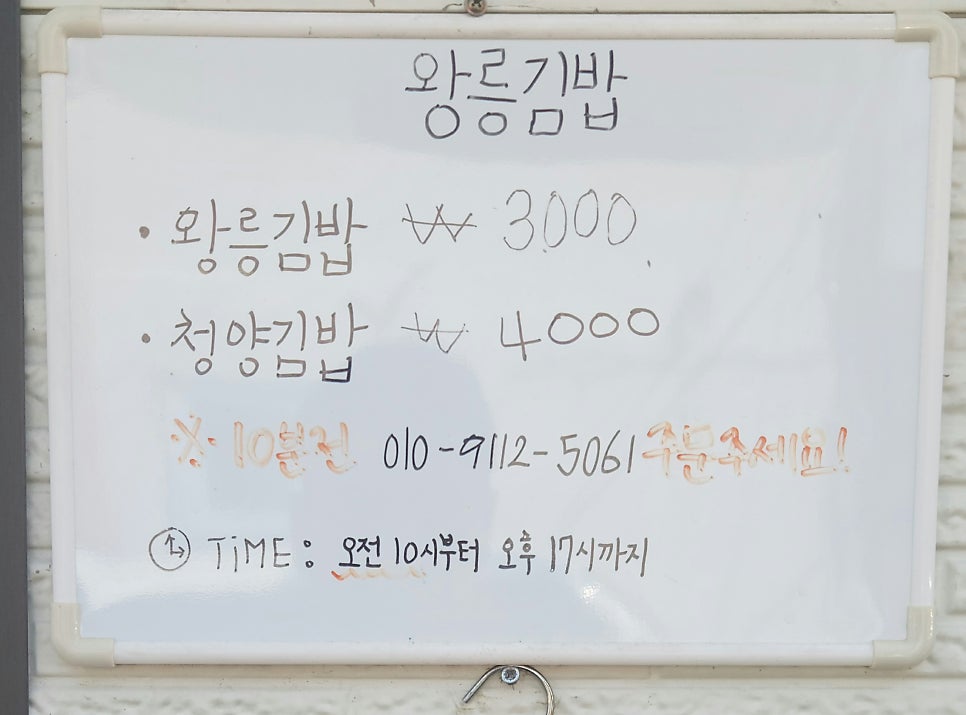 왕릉김밥
• 왕릉김밥 ₩ 3.000
• 청양김밥 ₩ 4000
※ 10분전 010-9112-5061 주문주세요!
TiME : 오전 10시부터 오후 17시까지